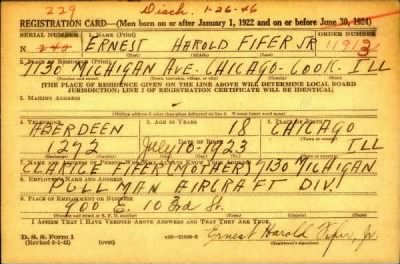 229 Disch. 1-26-46
REGISTRATION CARD—(Men born on or after January 1, 1922 and on or before June 30, 1924)
SERIAL NUMBER 1. NAME (Print) ORDER NUMBER
N 240 ERNEST HAROLD FIFER JR 11913
2. PLACE OF RESIDENCE (Print)
7130 MICHIGAN AVE. CHICAGO - COOK - ILL
[THE PLACE OF RESIDENCE GIVEN ON THE LINE ABOVE WILL DETERMINE LOCAL BOARD
JURISDICTION; LINE 2 OF REGISTRATION CERTIFICATE WILL BE IDENTICAL]
3. MAILING ADDRESS
[Mailing address if other than place indicated on line 2. If same insert word same]
4. TELEPHONE 5. AGE IN YEARS 6. PLACE OF BIRTH
ABERDEEN 18 CHICAGO
1272 July 10 1923 ILL
7. NAME AND ADDRESS OF PERSON WHO WILL ALWAYS KNOW YOUR ADDRESS
CLARICE FIFER (MOTHER) 7130 MICHIGAN
8. EMPLOYER'S NAME AND ADDRESS
PULLMAN AIRCRAFT DIV.
9. PLACE OF EMPLOYMENT OR BUSINESS
900 E. 103rd St.
I AFFIRM THAT I HAVE VERIFIED ABOVE ANSWERS AND THAT THEY ARE TRUE.
D. S. S. Form 1
(Revised 6-1-42) (over) Ernest Harold Fifer, Jr.